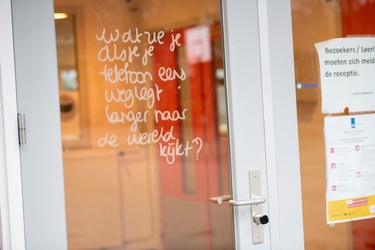 wat zie je
als je je
telefoon eens
weglegt
langer naar
de wereld
kijkt?
Bezoekers / Leerl
moeten zich meld
de receptie.